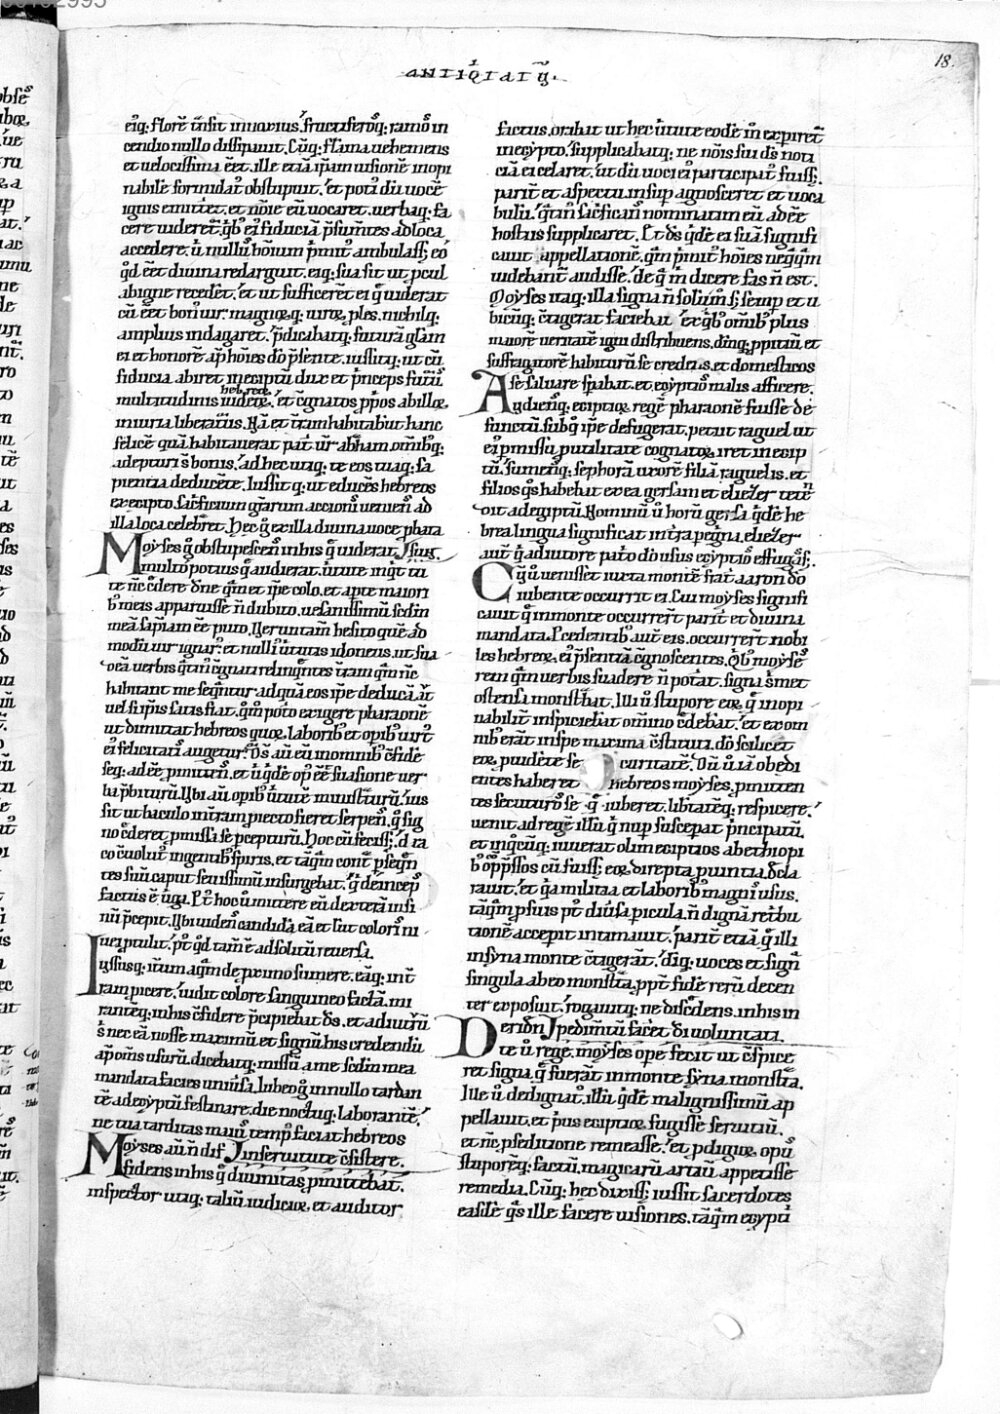 ANTIQITATŪ.
18.
eiq; florē trnsit inuarius, fructiferosq; ramos in
cendio nullo dissipauit. Cūq; flāma uehemens
et uelocissima eēt. ille etiā ipam uisionē inopi
nabilē formidat' obstupuit. et poti' dū uocē
ignis emittet. et noīe eū uocaret. uerbaq; fa
accedere. ū nullus hōium pmit' ambulass; eo
qd eēt diuina redarguit. eiq; sua sit ut pcul
abigne recedēt. et ut sufficerēt ei q uiderat
cū eēt bon' uir. magnoq;
amplius indagaret. pdicabatq; futurā glam
ei et honorē ap hoies dō psente. iussitq; ut cū
fiducia abiret inegiptū dux et pnceps futur'
multitudinis iudeoꝝ. et cgnatos ppos abilloꝝ
iniuria liberatur'. Nā et tram habitabunt hanc
felicē quā habitauerat pat' ur' abham. omibq;
adepturi s bonis. ad hec utiq; te eos tuaq; sa
pientia deducēte. Iussitq; ut educēs hebreos
exegipto sacficium grarum accioni uenieñ ad
illa loca celebret. Hec q exilla diuina uoce phara
Moyses q obstupescens inhis q uiderat. Isius.
multo potius q audierat. uirtute inqt tū
te nc cdere dne qm et ipe colo. et apte maiori
b' meis apparuisse n dubito. uesanissimū sed in
meā sapiam ēē puto. Uerumtam hesito quē ad
modū uir ignar'. et nulli' uirtutis idoneus. ut sua
habitant me sequntur. ad quā eos ipe deducā. at
uel si ipis satis fiat. qm poto exigere pharaonē
ut dimittat hebreos quoꝝ laborib' et opib' uirt'
ei felicitati augetur. Ds aū eū inomnib' cfidē
seq. adeē pmittens. et ū qde op' eē suasione uer
ba pbiturū. Ubi aū opib' uirtutē ministraturū. ius
sit ut baculo intram piecto fieret serpens. q sig
no cderet pmissa se pcepturū. Hoc cū fecissz. dra
co cuolut' ingentib' spiris. et taqm cont' pseqn
tes suū caput seuissimū insurgebat. q deincep
factus ē uiga. Et hoc
nū pcepit. Ubi uidens candidā eā et sic colorī ni
uei ptulit. pt qd tam ē ad solitū reuersa.
Iussusq; itum aqm de pximo sumere. eaq; int
ram picere. uidit colore sanguineo factā. mi
rantēq; inhis cfidere pcipiebat ds. et adiutorū
s nec eā nosse maximū. et signis his credendū
ap oms usurū. dicebatq; missū a me sed in mea
mandata facies uniusa. Iubeo q in nullo tardan
tē ad egyptū festinare. die noctuq; laborantē.
ne tua tarditas maius temp' faciat hebreos
Moyses aū n dif. Inseruitute csistere.
fidens inhis q diuinitas pmittebat.
inspector utiq; taliū iudicioꝝ. et auditor
factus. orabat ut hec uirtute eodē in expiret
inegypto. supplicabatq; ne nois sui ds noti
ciā ei celaret. ut dū uoci ei participat' fuiss;.
parit' et aspectū. insup agnosceret et uoca
bulū. qtin sacficans nominatim eū adeē
hostiis supplicaret. Et ds qde ei suā signifi
cauit appellationē. qm pmit' hoies neqqm
uidebant audisse. de q m dicere fas n est.
Moyses itaq; illa signa n solum s; semp et u
bicuq; ctigerat faciebat. ex qb' omib' plus
maiorē ueritatē igni distribuens. dmq; ppitiū et
suffragatorē habiturū se credens. et domesticos
se saluare spabat. et egyptios malis afficere.
Audiensq; egiptioꝝ regē pharaonē fuisse de
functū. sub q ipe defugerat. petiit raguel ut
ei pmissu putilitate cognatoꝝ iret in egip
tū. sumensq; sephorā uxorē filiā raguelis. et
filios qs habebat ex ea gersam et eliezer teten
dit ad egiptū. Nominū ū horū gersā qde he
brea lingua significat in tra pegrina. eliezer
aut q adiutore patno do usus egyptios effugiss;.
Cū q ū uenisset iuxta montē frat' aaron do
iubente occurrit ei. Cui moyses signifi
cauit q inmonte occurrert parit' et diuina
mandata. Pcedentib' aut eis. occurrert nobi
les hebreoꝝ. ei psentiā cgnoscentes. Qb' moyses
rem qm uerbis suadere n potat. signa smet
ostensa monstbat. Illi ū stupore eoꝝ q inopi
nabilit' inspiciebat omino cdebat. et ex om
nib' erat inspe maxima cstituti. do scilicet
eoꝝ puidere se curitatē. Dū ū iā obedi
entes haberet hebreos moyses. pmitten
tes secuturos se q iuberet. libtateq; respicere.
uenit ad regē illū q nup suscepat pncipatū.
et inqcuq; iuuerat olim egiptios ab ethiopi
b' oppssos cū fuiss; eoꝝ direpta puintia. dcla
rauit. et qa militia et laborib' magni usus.
taqm p suis pt diuisa picula. n dignā retibu
tionē accepit intimauit. parit' etiā q illi
insyna monte ctigerāt. diq; uoces et signa
singula ab eo monstra. ppt fidē rerū decen
ter exposuit. rogauitq; ne discdens. inhis in
Deridn Ipedimtū facet di uoluntati.
te ū rege. moyses ope fecit ut cspice
ret signa. q fuerāt inmonte syna monstra.
Ille ū dedignat' illū qde malignissimū ap
pellauit. et pus egiptioꝝ fugisse seruitiū.
et nc pseditione remeasse. et pdigioꝝ opus
stuporesq; factū. magicarū artiū appetisse
remedia. Cūq; hec dixiss; iussit sacerdotes
easdē qs ille facere uisiones. taqm egypti